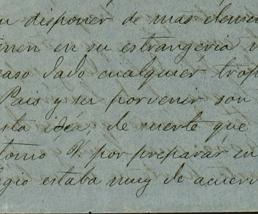 disponer de mas elemen
en su estrangería
caso dado cualquier trop
Pais y su porvenir son
sta idea, de suerte que
por preparar en
gio estaba muy de acuer